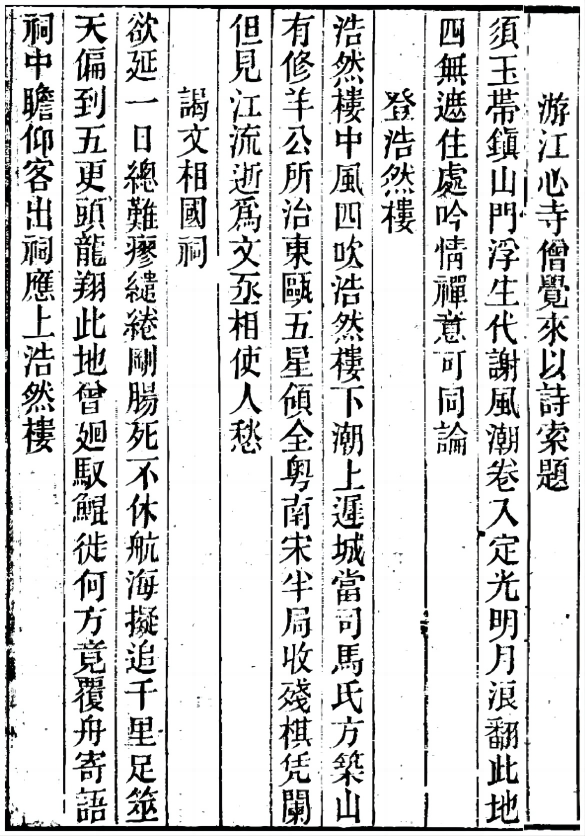 游江心寺僧覺來以詩索題
須玉帶鎮山門浮生代謝風潮卷入定光明月浪翻此地
四無遮住處吟情禪意可同論
登浩然樓
浩然樓中風四吹浩然樓下潮上遲城當司馬氏方築山
有修羊公所治東甌五星傾全粤南宋半局收殘棋凭闌
但見江流逝爲文丞相使人愁
謁文相國祠
欲延一日總難瘳繾綣剛腸死不休航海擬追千里足筮
天偏到五更頭龍翔此地曾廻馭鯤徙何方竟覆舟寄語
祠中瞻仰客出祠應上浩然樓